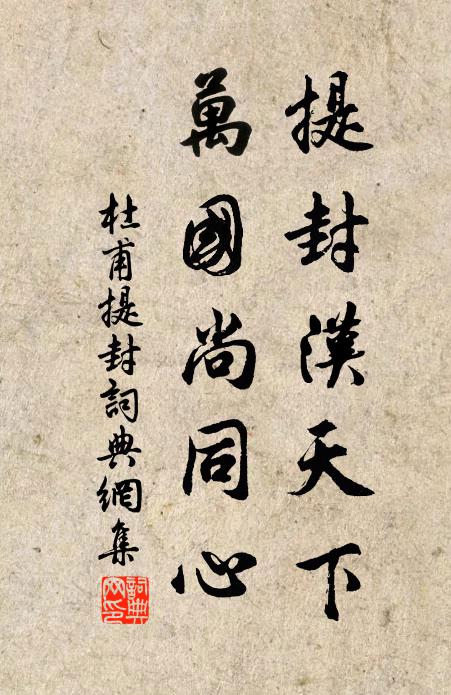 提封漢天下
萬國尚同心
杜甫提封詞典網集